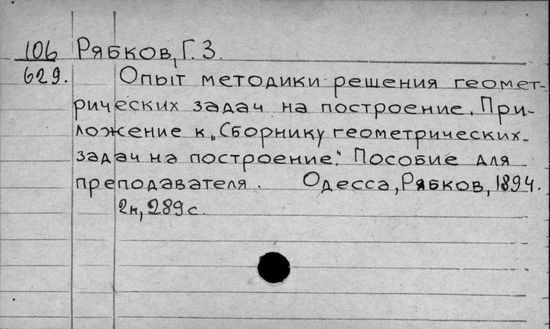 106 Рябков, Г. З.
629. Опыт методики решения геомет-
рических задач на построение. При-
ложение к „Сборнику геометрических
задач на построение." Пособие для
преподавателя. Одесса, Рябков, 1894.
2н, 289 с.